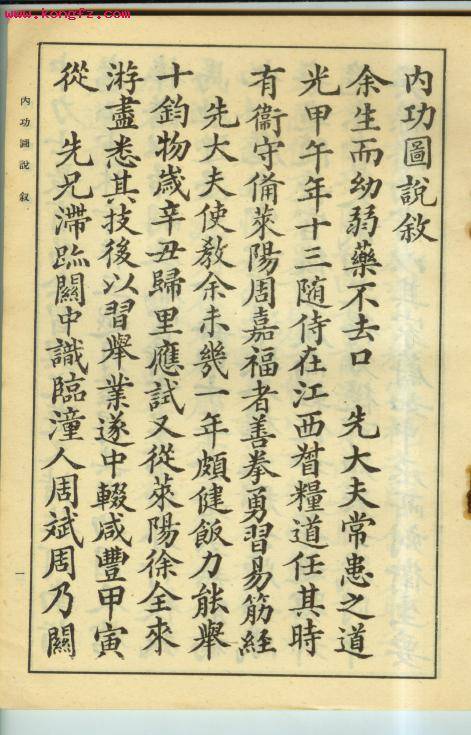 www.kongfz.com
內功圖說敘
余生而幼弱藥不去口　先大夫常患之道
光甲午年十三隨侍在江西督糧道任其時
有衞守備萊陽周嘉福者善拳勇習易筋經
先大夫使教余未幾一年頗健飯力能舉
十鈞物歲辛丑歸里應試又從萊陽徐全來
游盡悉其技後以習舉業遂中輟咸豐甲寅
從　先兄滯跡關中識臨潼人周斌周乃關
內功圖說　敘
一